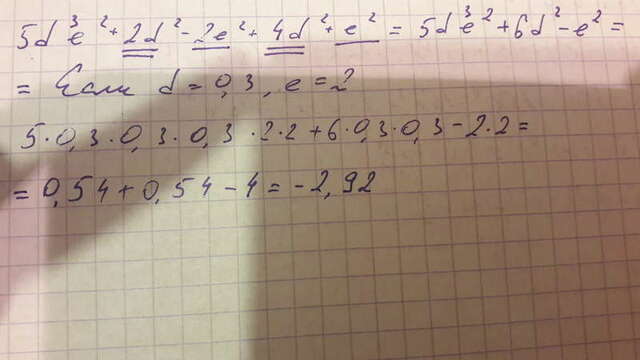 5d³e² + 2d² - 2e² + 4d² + e² = 5d³e² + 6d² - e² =
= Если d = 0,3, e = 2
5·0,3·0,3·0,3·2·2 + 6·0,3·0,3 - 2·2 =
= 0,54 + 0,54 - 4 = -2,92